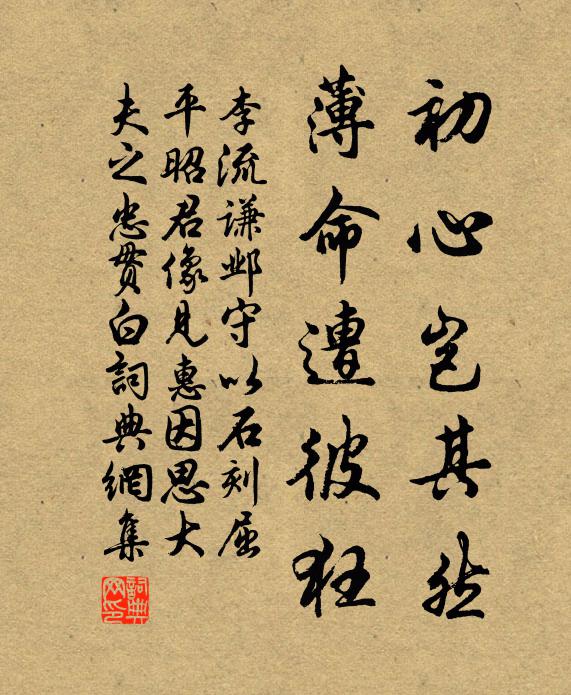 初心岂其然
薄命遭彼狂
李流謙邺守以石刻屈
平昭君像見惠因思大
夫之忠贯白詞典網集
詞典网印